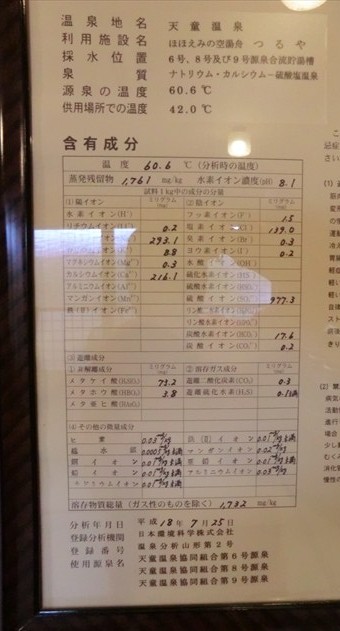 温泉地名 天童温泉
利用施設名 ほほえみの空湯舟 つるや
採水位置 6号、8号及び9号源泉合流貯湯槽
泉質 ナトリウム・カルシウム-硫酸塩温泉
源泉の温度 60.6℃
供用場所での温度 42.0℃
含有成分
温度 60.6 ℃ (分析時の温度)
蒸発残留物 1,761 mg/kg 水素イオン濃度(pH) 8.1
試料1kg中の成分の分量
(1) 陽イオン ミリグラム (mg) (2) 陰イオン ミリグラム (mg)
水素イオン(H⁺) フッ素イオン(F⁻) 1.5
リチウムイオン 0.2 塩素イオン(Cl⁻) 139.0
293.1 臭素イオン(Br⁻) 0.3
8.8 ヨウ素イオン(I⁻) 0.2
マグネシウムイオン 0.3 水酸イオン(OH⁻)
カルシウムイオン(Ca²⁺) 216.1 硫化水素イオン(HS⁻)
アルミニウムイオン 硫酸水素イオン
マンガンイオン(Mn²⁺) 硫酸イオン 977.3
鉄(Ⅱ)イオン(Fe²⁺)
炭酸水素イオン 17.6
炭酸イオン 0.2
(3) 遊離成分
① 非解離成分 ミリグラム (mg) ② 溶存ガス成分 ミリグラム (mg)
メタケイ酸(H₂SiO₃) 73.2 遊離二酸化炭素(CO₂) 0.3
メタホウ酸(HBO₂) 3.8 遊離硫化水素(H₂S) 0.1未満
メタ亜ヒ酸(HAsO₂)
(4) その他の微量成分
ヒ素 0.03
総水銀 0.0005 未満 マンガンイオン 0.02
銅イオン 0.01 未満 亜鉛イオン 0.01 未満
鉛イオン 0.01 未満 アルミニウムイオン 0.03
溶存物質総量(ガス性のものを除く) 1,732 mg/kg
分析年月日 平成18年7月25日
登録分析機関 日本環境科学株式会社
登録番号 温泉分析山形第2号
使用源泉名 天童温泉協同組合第6号源泉
天童温泉協同組合第8号源泉
天童温泉協同組合第9号源泉